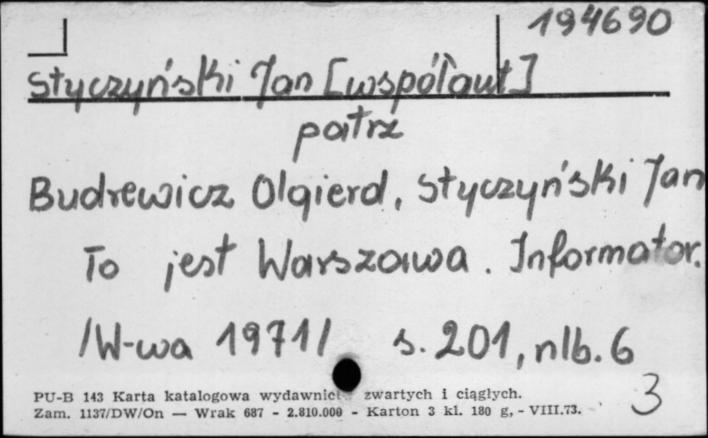 194690
Styczyński Jan [współaut]
patrz
Budrewicz Olgierd, Styczyński Jan
To jest Warszawa. Informator.
/W-wa 1971/ s. 201, nlb. 6
3
PU-B 143 Karta katalogowa wydawnict zwartych i ciągłych.
Zam. 1137/DW/On — Wrak 687 - 2.810.000 - Karton 3 kl. 180 g, - VIII.73.